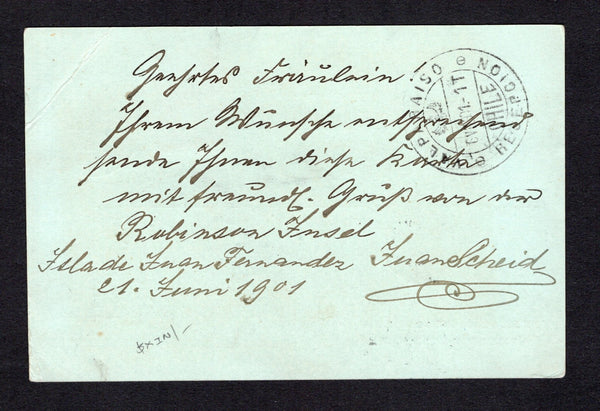 Geehrtes Fräulein!
Ihrem Wunsche entsprechend
sende Ihnen diese Karte
mit freundl. Gruß von der
Robinson Insel
Isla de Juan Fernandez Juan Scheid
21. Juni 1901
VALPARAISO
RECEPCION
CHILE